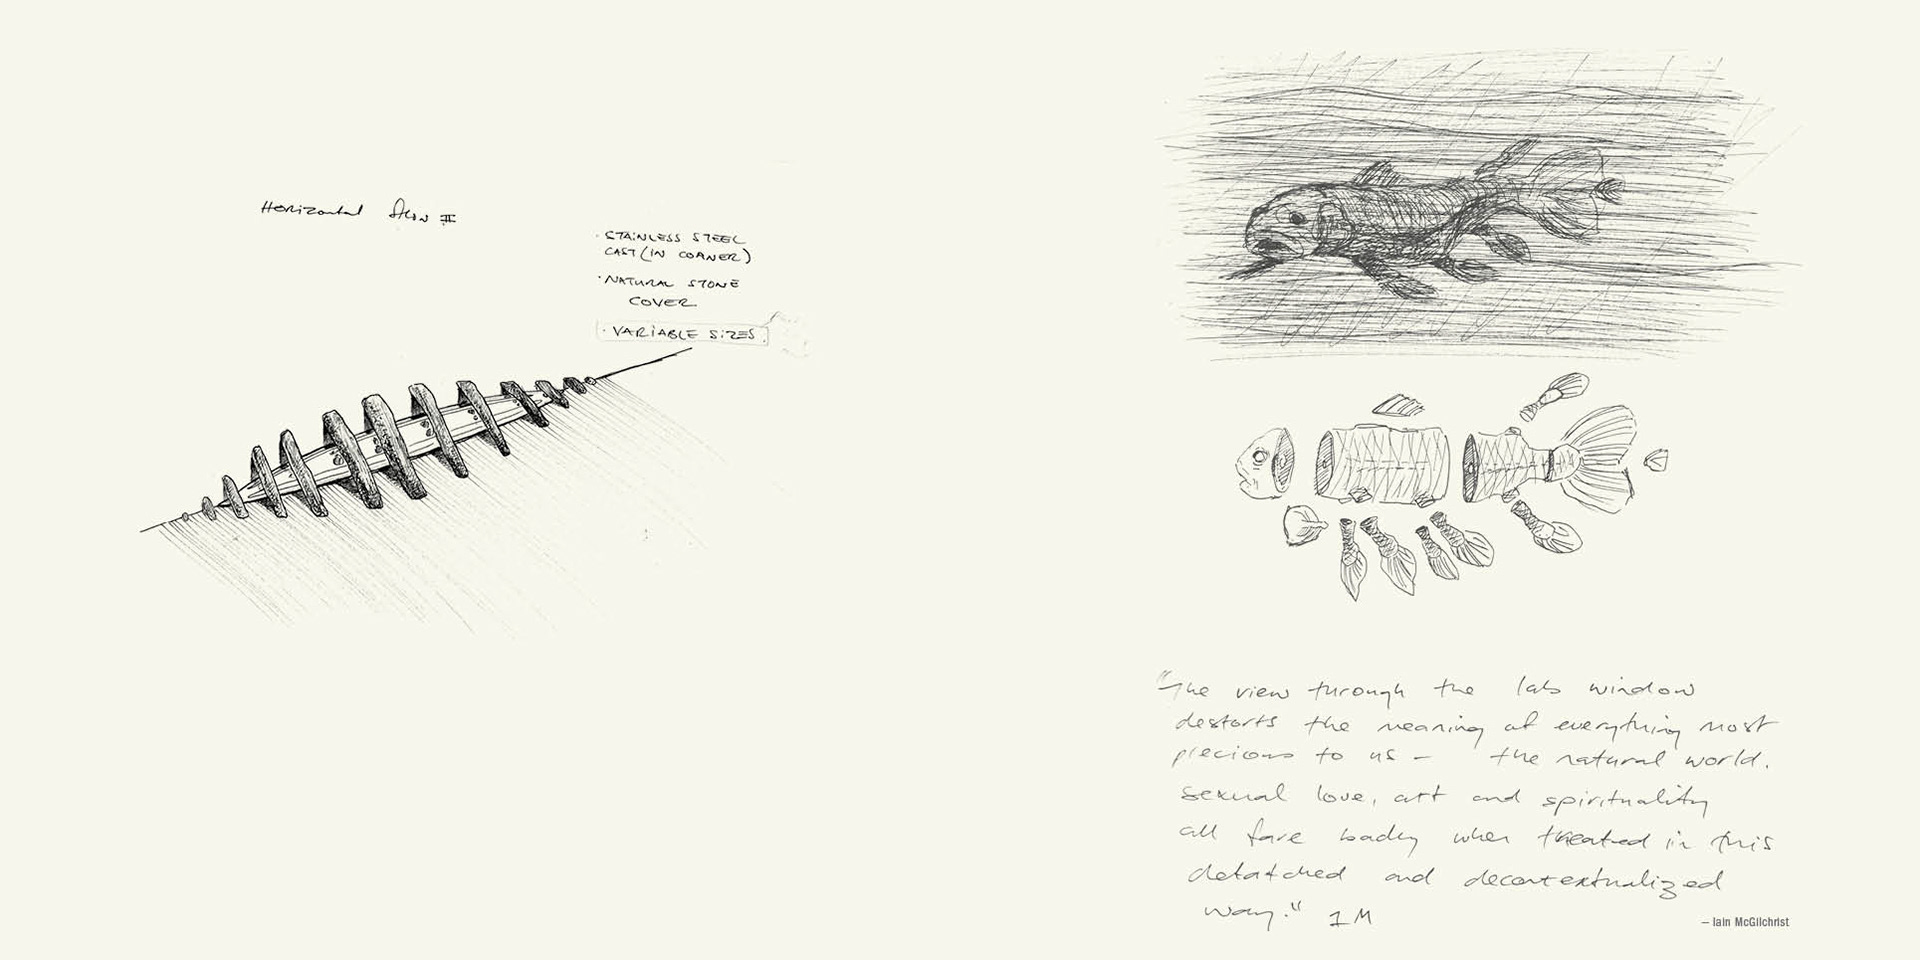 Horizontal Flow II
· STAINLESS STEEL
CAST (IN CORNER)
· NATURAL STONE
COVER
· VARIABLE SIZES.
"The view through the lab window
destorts the meaning of everything most
precious to us – the natural world.
sexual love, art and spirituality
all fare badly when treated in this
detatched and decontextualized
way." IM
– Iain McGilchrist